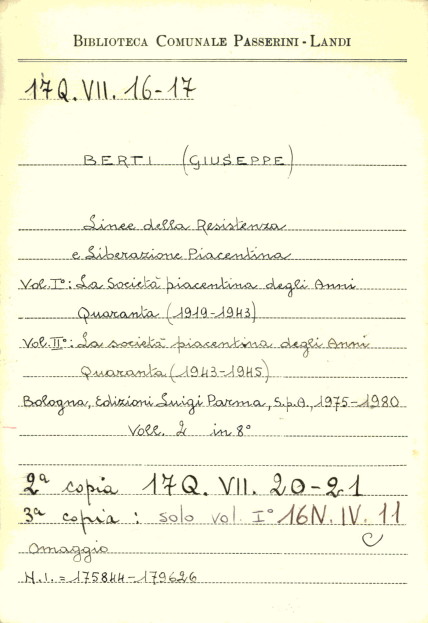 BIBLIOTECA COMUNALE PASSERINI-LANDI
17Q. VII. 16-17
BERTI (GIUSEPPE)
Linee della Resistenza
e Liberazione Piacentina
Vol. I°: La Società piacentina degli Anni
Quaranta (1919-1943)
Vol. II°: La società piacentina degli Anni
Quaranta (1943-1945)
Bologna, Edizioni Luigi Parma, S.p.A., 1975-1980
Voll. 2 in 8°
2ª copia 17Q. VII. 20-21
3ª copia: solo vol. I° 16N. IV. 11
C
Omaggio
N.I. = 175844-179626